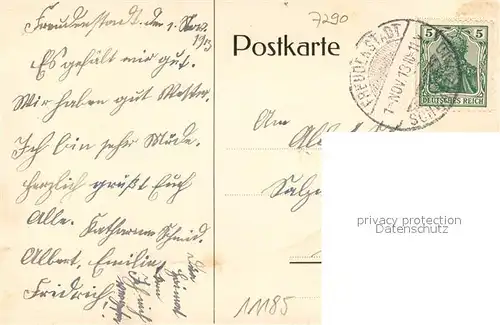 Freudenstadt, den 1. Nov.
1913
Es gefällt mir gut.
Wir haben gut Wetter.
Ich bin sehr Müde.
Herzlich grüßt Euch
Alle. Katharina Schmid.
Albert, Emilie,
Fridrich!
7290
Postkarte
FREUDENSTADT
1-NOV 13
5 5
DEUTSCHES REICH
An
Salz
privacy protection
Datenschutz
11185